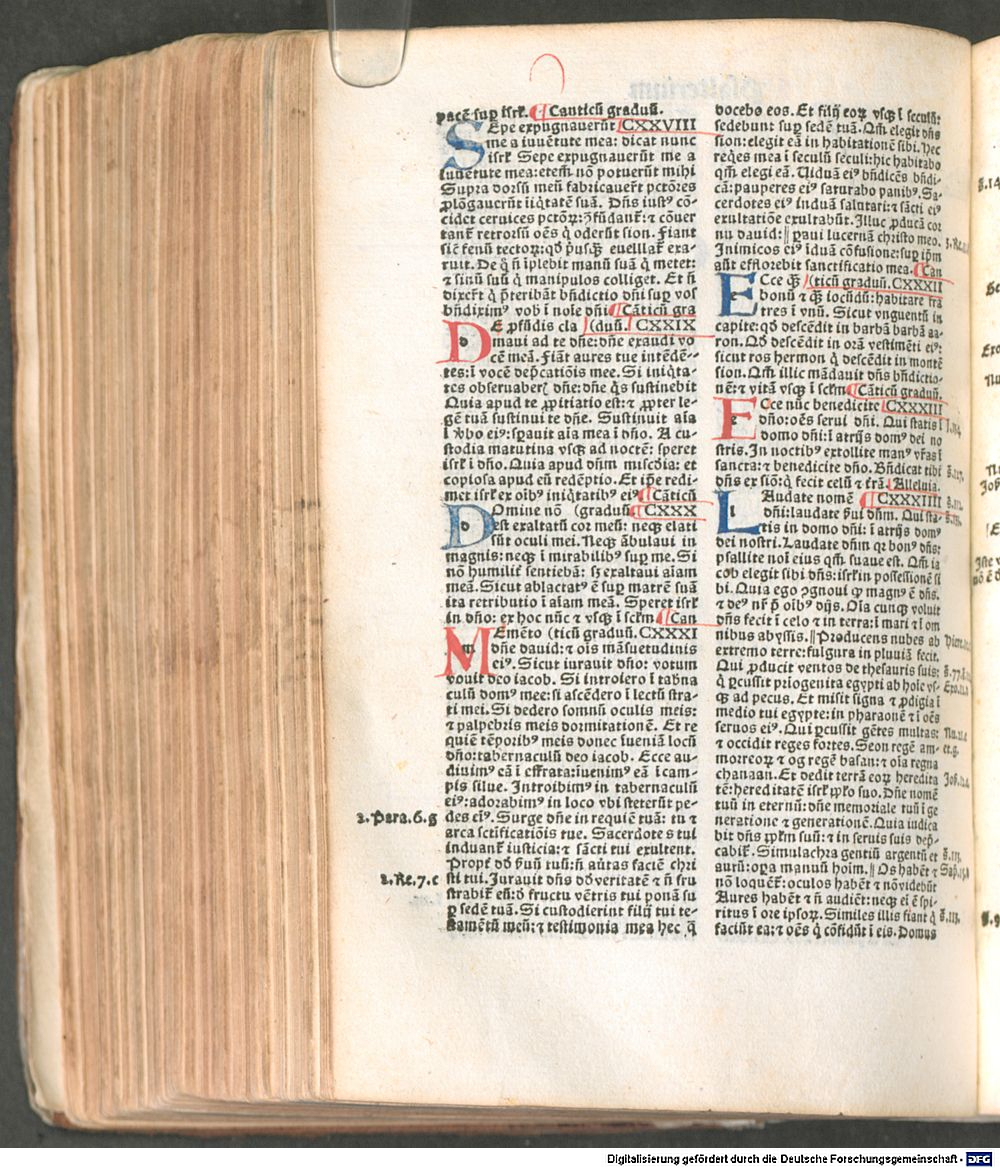 pacē suꝑ isrl̄. Canticū graduū.
SEpe expugnauerūt CXXVIII
me a iuuētute mea: dicat nunc
isrl̄ Sepe expugnauerūt me a
iuuētute mea: etem̄ nō potuerūt mihi
Supra dorsū meū fabricauerūt pctōres
ꝓlōgauerūt iiqͥtatē suā. Dn̄s iustꝰ cō-
cidet ceruices pctōꝝ: ꝯfūdant᷑: ⁊ cōuer
tant᷑ retrorsū oēs q̇ oderūt sion. Fiant
sic̄ fenū tectoꝝ: qd̄ pͥusꝙ̄ euellat᷑ exa-
ruit. De q̊ n̄ īplebit manū suā q̇ metet:
⁊ sinū suū q̇ manipulos colliget. Et n̄
dixer̄t q̇ p̄teribāt bn̄dictio dn̄i suꝑ vos
bn̄diximꝰ vob̄ ī noīe dn̄i Cāticū gra
DE ꝓfūdis cla (duū. CXXIX
maui ad te dn̄e: dn̄e exaudi vo
cē meā. Fiāt aures tue intēdē-
tes: ī vocē dep̄catiōis mee. Si iniqͥta-
tes obseruaueris dn̄e: dn̄e qͥs sustinebit
Quia apud te ꝓpitiatio est: ⁊ ꝓpter le-
gē tuā sustinui te dn̄e. Sustinuit aīa
ī v̄bo eiꝰ: sperauit aīa mea ī dn̄o. A cu-
stodia matutina vsqꝫ ad noctē: speret
isrl̄ ī dn̄o. Quia apud dn̄m mīscdīa: et
copiosa apud eū redēptio. Et ip̄e redi-
met isrl̄ ex oībꝰ iniqͥtatibꝰ eiꝰ Cāticū
DOmine nō (graduū CXXX
est exaltatū cor meū: neqꝫ elati
sūt oculi mei. Neqꝫ ābulaui in
magnis: neqꝫ ī mirabilibꝰ suꝑ me. Si
nō humilit᷑ sentiebā: sꝫ exaltaui aīam
meā. Sicut ablactatꝰ ē suꝑ matrē suā
ita retributio ī aīam meā. Speret isrl̄
in dn̄o: ex hoc nūc ⁊ vsqꝫ ī sclm̄ Can
MEmēto (ticū graduū. CXXXI
dn̄e dauid: ⁊ oīs māsuetudinis
eiꝰ. Sicut iurauit dn̄o: votum
vouit deo iacob. Si introiero ī tab̄na
culū domꝰ mee: si ascēdero ī lectū stra-
ti mei. Si dedero somnū oculis meis:
⁊ palpebris meis dormitationē. Et re
quiē tēporibꝰ meis donec īueniā locū
dn̄o: tabernaculū deo iacob. Ecce au-
diuimꝰ eā ī effrata: iuenimꝰ eā ī cam-
pis silue. Introibimꝰ in tabernaculū
eiꝰ: adorabimꝰ in loco vbi steterūt pe-
2. Para. 6. g
des eiꝰ. Surge dn̄e in requiē tuā: tu ⁊
arca sctificatiōis tue. Sacerdotes tui
induant᷑ iusticia: ⁊ sācti tui exultent.
Propt᷑ dd̄ ẜuū tuū: n̄ auertas faciē chri
2. Re. 7. c
sti tui. Jurauit dn̄s dd̄ veritatē ⁊ n̄ fru
strabit᷑ eū: d̄ fructu vētris tui ponā su
ꝑ sedē tuā. Si custodierint filij tui te-
stamētū meū: ⁊ testimonia mea hec q̄
docebo eos. Et filij eoꝝ vsqꝫ ī seculū:
sedebunt suꝑ sedē tuā. Qm̄ elegit dn̄s
sion: elegit eā in habitationē sibi. Hec
reqͥes mea ī seculū seculi: hic habitabo
qm̄ elegi eā. Uiduā eiꝰ bn̄dicēs bn̄di-
cā: pauperes eiꝰ saturabo panibꝰ. Sa-
cerdotes eiꝰ induā salutari: ⁊ sācti eiꝰ
exultatiōe exultabūt. Illuc ꝓducā cor
nu dauid: || paui lucernā christo meo.
Inimicos eiꝰ īduā cōfusione: suꝑ ip̄m
aūt efflorebit sanctificatio mea. Can
ECce qꝫ̄ (ticū graduū. CXXXII
bonū ⁊ qꝫ̄ iocūdū: habitare fra
tres ī vnū. Sicut vnguentū in
capite: qd̄ descēdit in barbā barbā aa-
ron. Qd̄ descēdit in orā vestimēti eiꝰ:
sicut ros hermon q̇ descēdit in montē
sion. Qm̄ illic mādauit dn̄s bn̄dictio-
nē: ⁊ vitā vsqꝫ ī sclm̄ Cāticū graduū.
ECce nūc benedicite CXXXIII
dn̄o: oēs serui dn̄i. Qui statis ī
domo dn̄i: ī atrijs domꝰ dei no
stris. In noctibꝰ extollite manꝰ vr̄as ī
sancta: ⁊ benedicite dn̄o. Bn̄dicat tibi
dn̄s ex siō: q̇ fecit celū ⁊ trā. Alleluia.
LAudate nomē CXXXIIII
dn̄i: laudate ẜui dn̄m. Qui sta-
tis in domo dn̄i: ī atrijs domꝰ
dei nostri. Laudate dn̄m qꝛ bonꝰ dn̄s:
psallite noī eius qm̄ suaue est. Qm̄ ia
cob elegit sibi dn̄s: isrl̄ in possessionē si
bi. Quia ego ꝯgnoui ꝙ magnꝰ ē dn̄s.
⁊ deꝰ nr̄ p̄ oībꝰ dijs. Oīa cunqꝫ voluit
dn̄s fecit ī celo ⁊ in terra: ī mari ⁊ ī om
nibus abyssis. || Producens nubes ab
extremo terre: fulgura in pluuiā fecit.
Qui ꝓducit ventos de thesauris suis:
q̇ ꝑcussit pͥogenita egypti ab hoīe vs-
qꝫ ad pecus. Et misit signa ⁊ ꝓdigia ī
medio tui egypte: in pharaonē ⁊ ī oēs
seruos eiꝰ. Qui ꝑcussit gētes multas:
⁊ occidit reges fortes. Seon regē am-
morreoꝝ ⁊ og regē basan: ⁊ oīa regna
chanaan. Et dedit terrā eoꝝ heredita
tē: hereditatē isrl̄ pplo suo. Dn̄e nomē
tuū in eternū: dn̄e memoriale tuū ī ge
neratione ⁊ generationē. Quia iudica
bit dn̄s pplm̄ suū: ⁊ in seruis suis dep̄-
cabit᷑. Simulachra gentiū argentū et
aurū: oꝑa manuū hoīm. || Os habēt ⁊
nō loquēt᷑: oculos habēt ⁊ nō videbūt
Aures habēt ⁊ n̄ audiēt: neqꝫ ei ē spi-
ritus ī ore ipsoꝝ. Similes illis fiant q̇
faciūt ea: ⁊ oēs q̇ cōfidūt ī eis. Domus
Digitalisierung gefördert durch die Deutsche Forschungsgemeinschaft - DFG